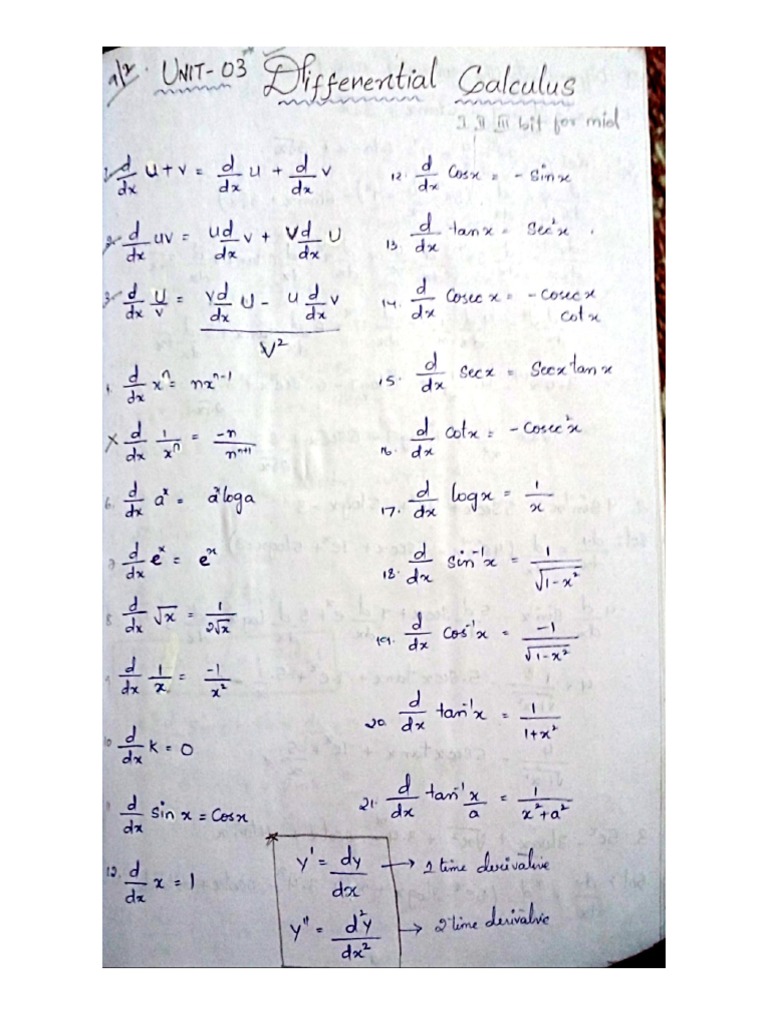 UNIT-03 Differential Calculus
I II III bit for mid
1. d/dx u+v = d/dx u + d/dx v
2. d/dx uv = u d/dx v + v d/dx u
3. d/dx u/v = (v d/dx u - u d/dx v)/v²
d/dx xⁿ = nxⁿ⁻¹
X d/dx 1/xⁿ = -n/nⁿ⁺¹
6. d/dx aˣ = aˣ log a
7 d/dx eˣ = eˣ
8. d/dx √x = 1/2√x
d/dx 1/x = -1/x²
10 d/dx k = 0
d/dx sin x = Cosx
12. d/dx x = 1
12. d/dx Cosx = - Sinx
13. d/dx tanx = Sec²x
14. d/dx Cosecx = -Cosecx
Cotx
15. d/dx Secx = Secxtanx
16. d/dx Cotx = -Cosec²x
17. d/dx logx = 1/x
18. d/dx sin⁻¹x = 1/√1-x²
19. d/dx Cos⁻¹x = -1/√1-x²
20. d/dx tan⁻¹x = 1/1+x²
21. d/dx tan⁻¹ x/a = 1/x²+a²
* y' = dy/dx → 1 time derivative
y" = d²y/dx² → 2 time derivative